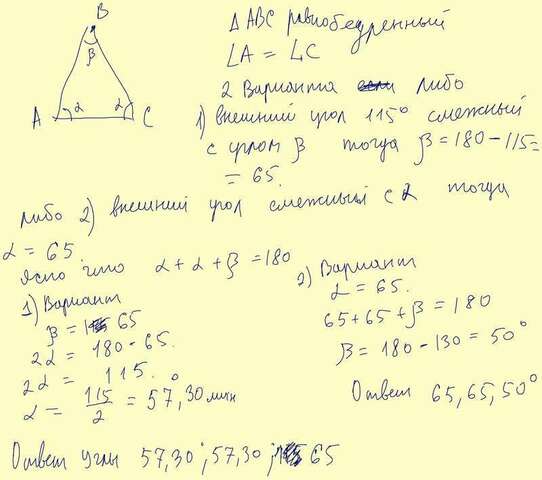 B
β
A α α C
Δ ABC равнобедренный
∠A = ∠C
2 Варианта либо
1) внешний угол 115° смежный
с углом β тогда β = 180 - 115 =
= 65.
либо 2) внешний угол смежный с α тогда
α = 65.
Ясно что α + α + β = 180
1) Вариант
β = 65
2α = 180 - 65.
2α = 115.
α = 115/2 = 57°,30 мин
2) Вариант
α = 65.
65 + 65 + β = 180
β = 180 - 130 = 50°
Ответ 65, 65, 50°
Ответ углы 57,30', 57,30', 65